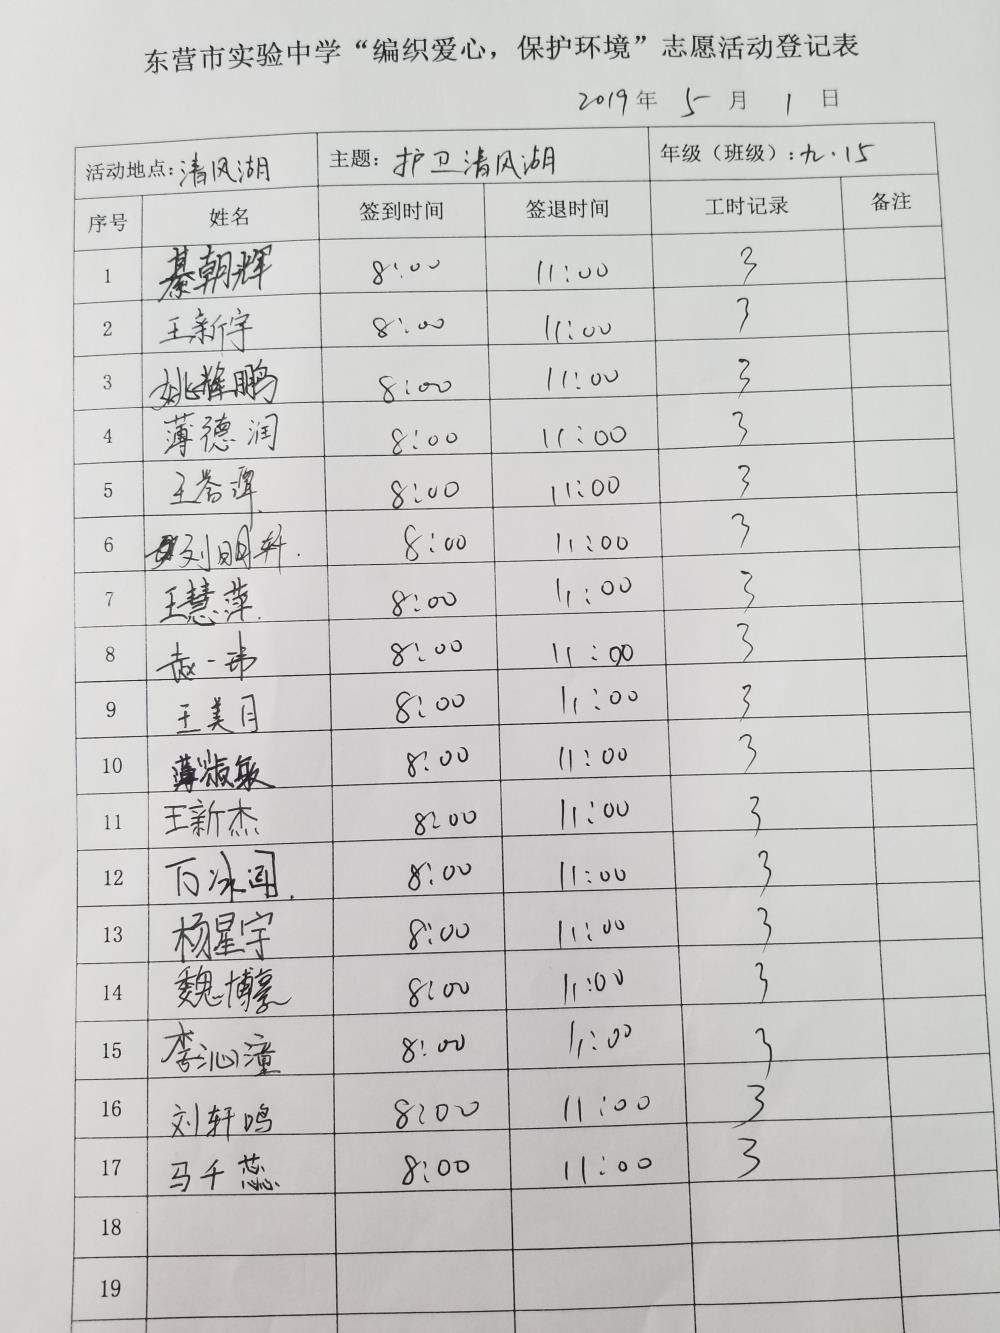 东营市实验中学“编织爱心，保护环境”志愿活动登记表
2019年 5 月 1 日
活动地点：清风湖 主题：护卫清风湖 年级（班级）：九·15
序号 姓名 签到时间 签退时间 工时记录 备注
1 綦朝辉 8:00 11:00 3
2 王新宇 8:00 11:00 3
3 姚辉鹏 8:00 11:00 3
4 薄德润 8:00 11:00 3
5 王 8:00 11:00 3
6 刘明轩. 8:00 11:00 3
7 王慧萍. 8:00 11:00 3
8 赵一玮 8:00 11:00 3
9 王美月 8:00 11:00 3
10 薄淑敏 8:00 11:00 3
11 王新杰 8:00 11:00 3
12 冰闻. 8:00 11:00 3
13 杨星宇 8:00 11:00 3
14 魏博豪 8:00 11:00 3
15 李沁潼 8:00 11:00 3
16 刘轩鸣 8:00 11:00 3
17 马千蕊 8:00 11:00 3
18
19